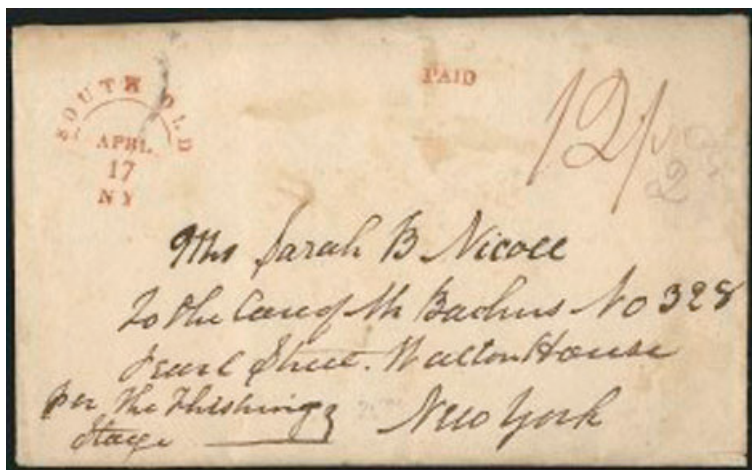 SOUTHOLD
APRIL
17
NY
PAID
12/
Mrs Sarah B Nicoll
To the Care of Mr Bachus No 328
Pearl Street. Walton House
New York
per The Flushing
Stage